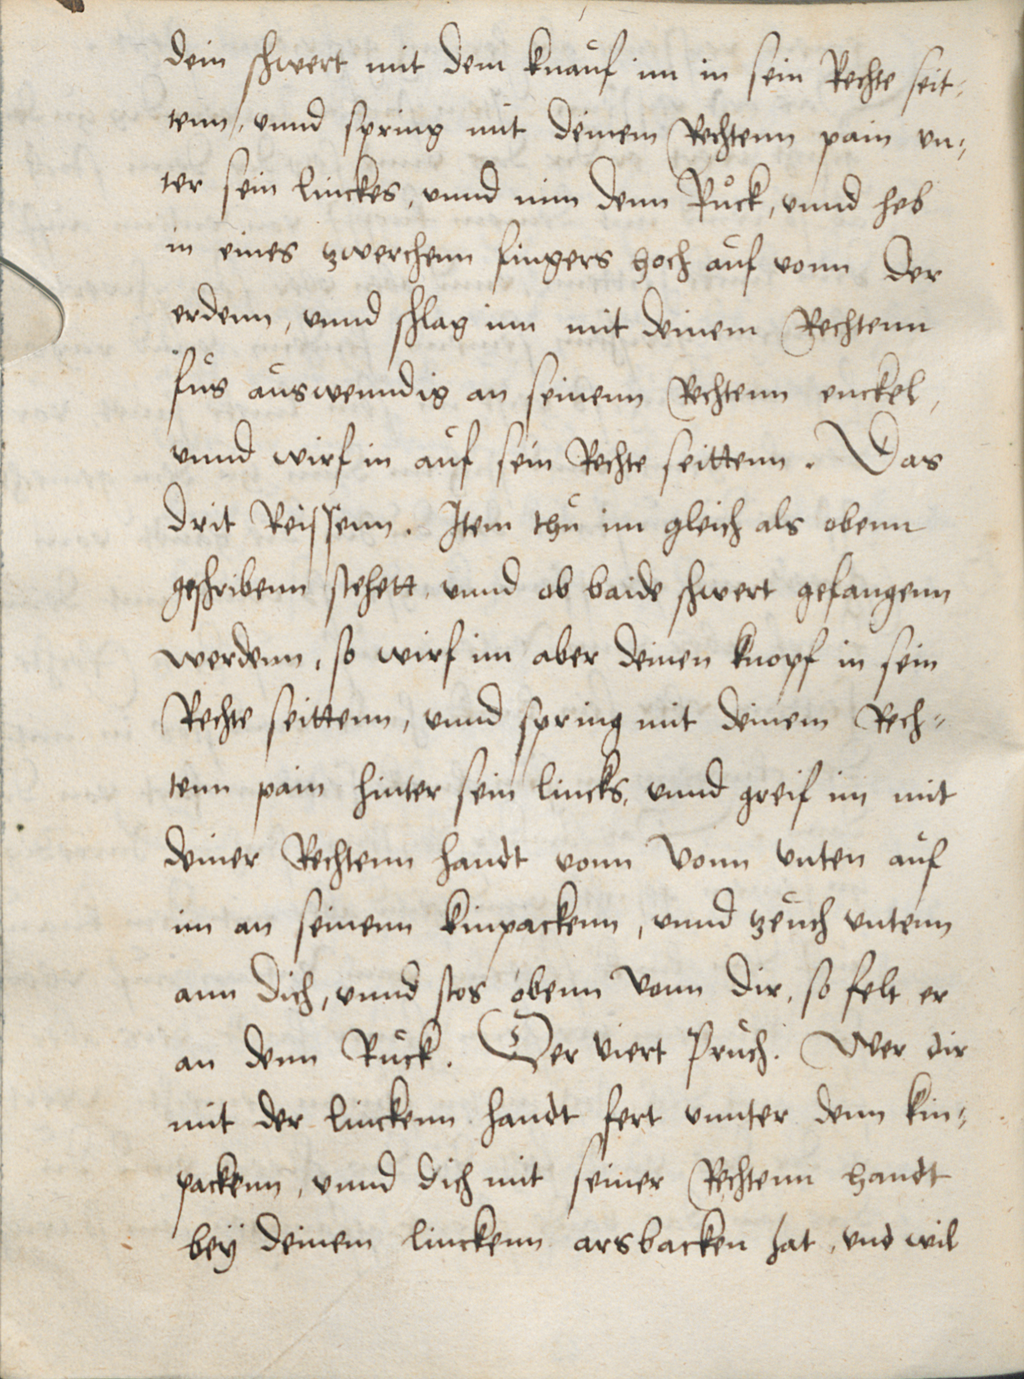 dein schwert mit dem knauf im in sein Rechte seit-
tenn, vnnd spring mit deinem Rechtenn pain vn-
ter sein linckes, vnnd nim denn Ruck, vnnd heb
in eines zwerchenn fingers hoch auf vonn der
erdenn, vnnd schlag inn mit deinem Rechtenn
fus auswenndig an seinenn Rechtenn enckel,
vnnd wirf in auf sein Rechte seittenn. Das
drit Reissenn. Item thu im gleich als obenn
geschribenn stehett, vnnd ob baide schwert gefangenn
werdenn, so wirf im aber deinen knopf in sein
Rechte seittenn, vnnd spring mit deinem Rech-
tenn pain hinter sein lincks, vnnd greif im mit
deiner Rechtenn handt vonn vonn vnten auf
im an seinenn kinpackenn, vnnd zeuch vntenn
ann dich, vnnd stos obenn vonn dir, so felt er
an denn Ruck. Der viert Pruch. Wer dir
mit der linckenn handt fert vnnter denn kin-
packenn, vnnd dich mit seiner Rechtenn handt
beÿ deinem linckenn arsbacken hat, vnd wil